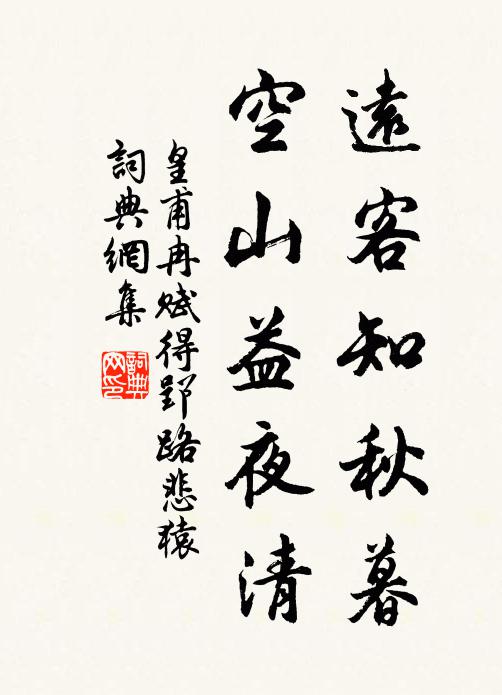 遠客知秋暮
空山益夜清
皇甫冉賦得郢路悲猿
詞典網集
詞典
网印